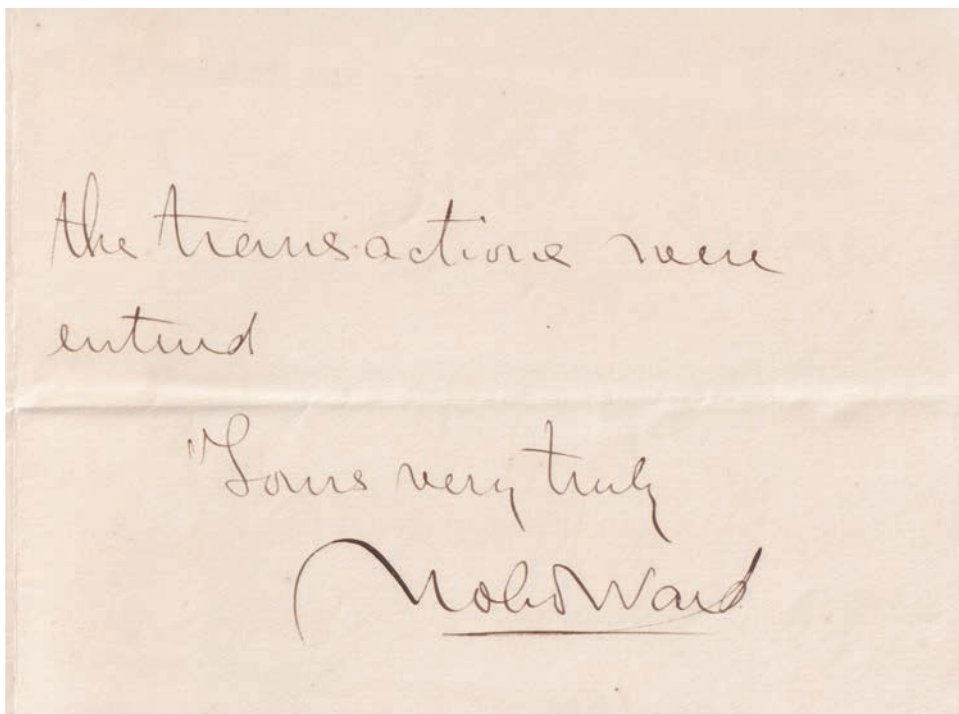 the transactions were
entered
Yours very truly
Ward